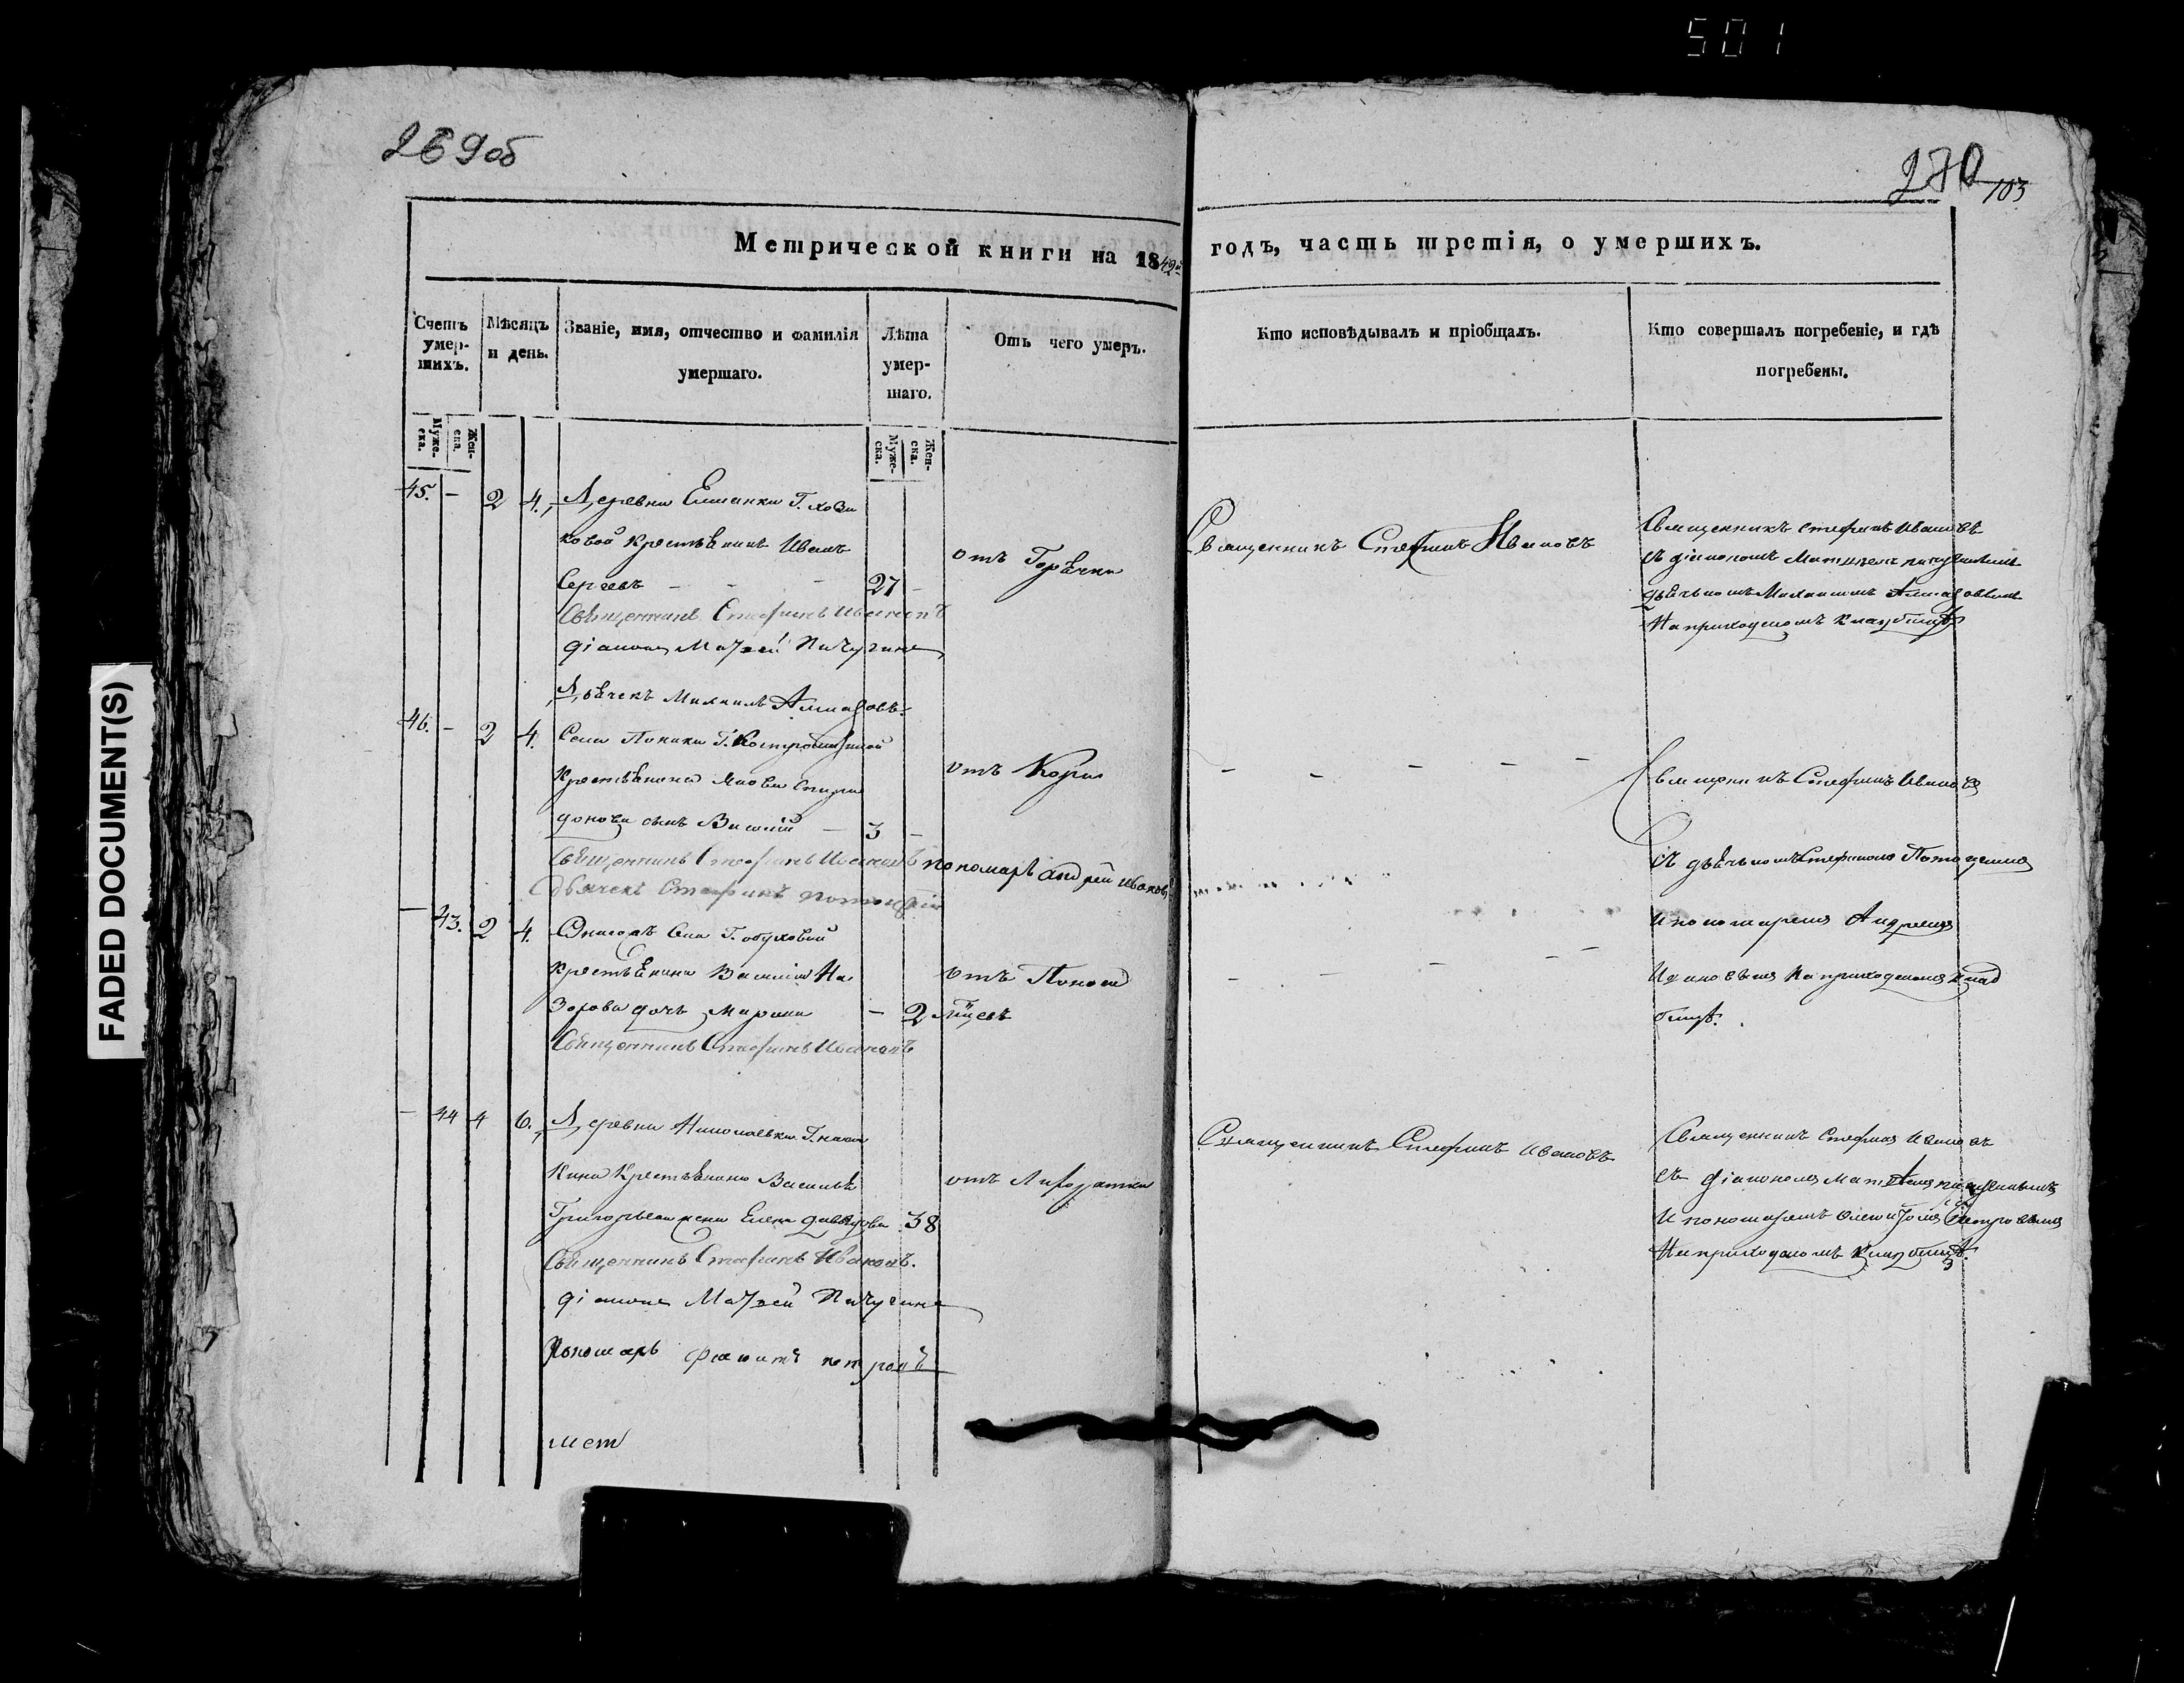 501
269об
270
103
Метрической книги на 1849й годъ, часть третія, о умершихъ.
Счетъ умер-шихъ.
Мѣсяцъ и день.
Званіе, имя, отчество и фамилія умершаго.
Лѣта умер-шаго.
Отъ чего умеръ.
Кто исповѣдывалъ и пріобщалъ.
Кто совершалъ погребеніе, и гдѣ погребены.
Муже-ска.
Жен-ска.
Муже-ска.
Жен-ска.
45. - 2 4. Деревни Елшанки Г.
ковой крестьянинъ Иванъ
Сергеевъ - - - 27 -
отъ Горячки
Священникъ Стефанъ Ивановъ
Священникъ Стефанъ Ивановъ
съ діакономъ
дьячькомъ Михаиломъ
На приходскомъ кладбищѣ
Священникъ Стефанъ Ивановъ
діаконъ Матвей Пичугинъ
Дьячекъ Михаилъ
46. - 2 4. Села Г.
крестьянина Якова Спири
донова сынъ Василій - 3 -
отъ Кори
- - - - -
Священникъ Стефанъ Ивановъ
Съ дьячькомъ Стефаномъ
и пономаремъ Андреемъ
Ивановымъ на приходскомъ клад
бищѣ.
Священникъ Стефанъ Ивановъ пономарь Андрей Ивановъ
Дьячекъ Стефанъ
- 43. 2 4. Села Г.
крестьянина Василія На
зарова дочь Марина - 2 мѣсев
отъ Поноса
- - - -
Священникъ Стефанъ Ивановъ
- 44 4 6. Деревни Николаевки Г.
кина крестьянина Василья
Григорьева жена Елена Давыдова 38
отъ Лихорадки
Священникъ Стефанъ Ивановъ
Священникъ Стефанъ Ивановъ
съ діакономъ
и пономаремъ Петровымъ
На приходскомъ кладбищѣ.
Священникъ Стефанъ Ивановъ.
діаконъ Матвей Пичугинъ
Пономарь Петровъ
мет
FADED DOCUMENT(S)